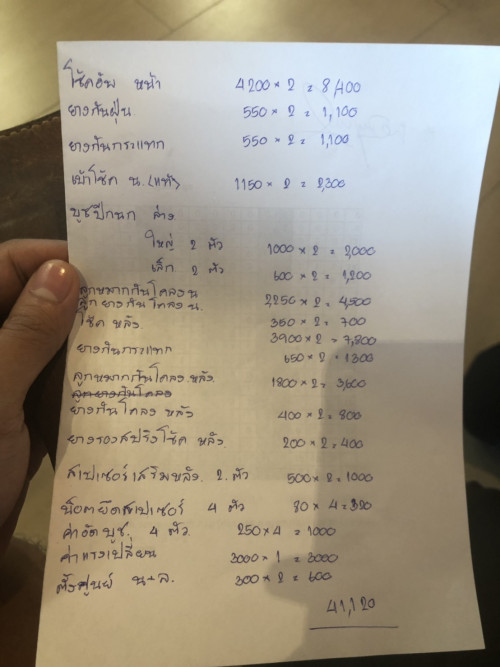 โช้คอัพ หน้า 4200 × 2 = 8,400
ยางกันฝุ่น 550 × 2 = 1,100
ยางกันกระแทก 550 × 2 = 1,100
เบ้าโช้ค น. (แท้) 1150 × 2 = 2,300
บูชปีกนก ล่าง
ใหญ่ 2 ตัว 1000 × 2 = 2,000
เล็ก 2 ตัว 600 × 2 = 1,200
ลูกหมากกันโคลง น 2,250 × 2 = 4,500
ยางกันโคลง น. 350 × 2 = 700
โช้ค หลัง. 3900 × 2 = 7,800
ยางกันกระแทก 650 × 2 = 1300
ลูกหมากกันโคลง หลัง. 1800 × 2 = 3,600
ยางกันโคลง หลัง 400 × 2 = 800
ยางรองสปริงโช้ค หลัง. 200 × 2 = 400
สเปเซอร์เสริมหลัง. 2. ตัว 500 × 2 = 1000
น็อตยึดสเปเซอร์ 4 ตัว 80 × 4 = 320
ค่าอัดบูช. 4 ตัว. 250 × 4 = 1000
ค่าแรงเปลี่ยน 3000 × 1 = 3000
ตั้งศูนย์ น+ล. 300 × 2 = 600
41,120